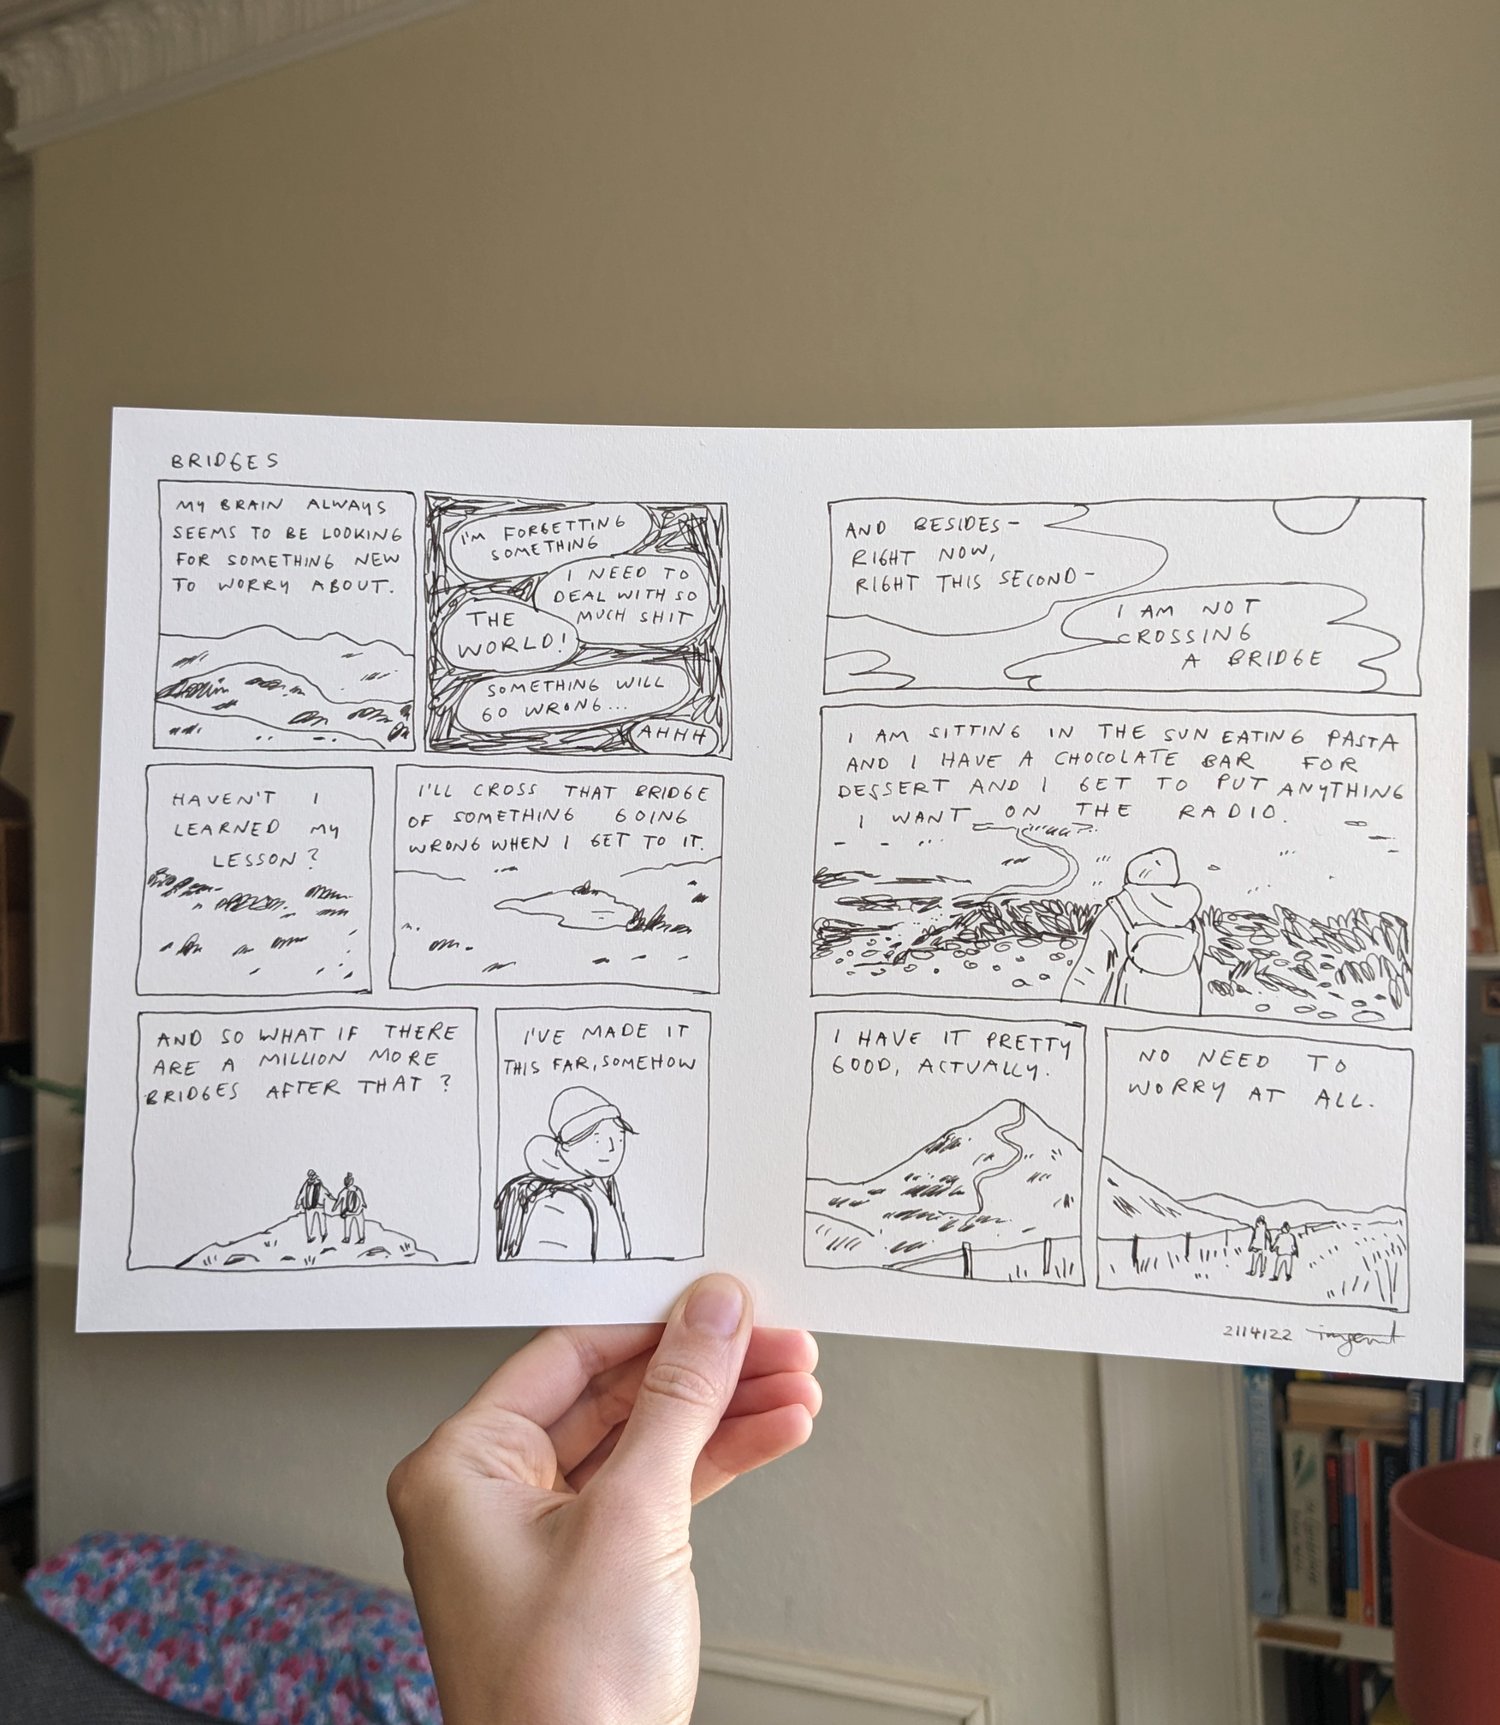 BRIDGES
MY BRAIN ALWAYS
SEEMS TO BE LOOKING
FOR SOMETHING NEW
TO WORRY ABOUT.
I'M FORGETTING
SOMETHING
I NEED TO
DEAL WITH SO
MUCH SHIT
THE
WORLD!
SOMETHING WILL
GO WRONG...
AHHH
HAVEN'T I
LEARNED MY
LESSON?
I'LL CROSS THAT BRIDGE
OF SOMETHING GOING
WRONG WHEN I GET TO IT.
AND SO WHAT IF THERE
ARE A MILLION MORE
BRIDGES AFTER THAT?
I'VE MADE IT
THIS FAR, SOMEHOW
AND BESIDES-
RIGHT NOW,
RIGHT THIS SECOND-
I AM NOT
CROSSING
A BRIDGE
I AM SITTING IN THE SUN EATING PASTA
AND I HAVE A CHOCOLATE BAR FOR
DESSERT AND I GET TO PUT ANYTHING
I WANT ON THE RADIO.
I HAVE IT PRETTY
GOOD, ACTUALLY.
NO NEED TO
WORRY AT ALL.
2114122